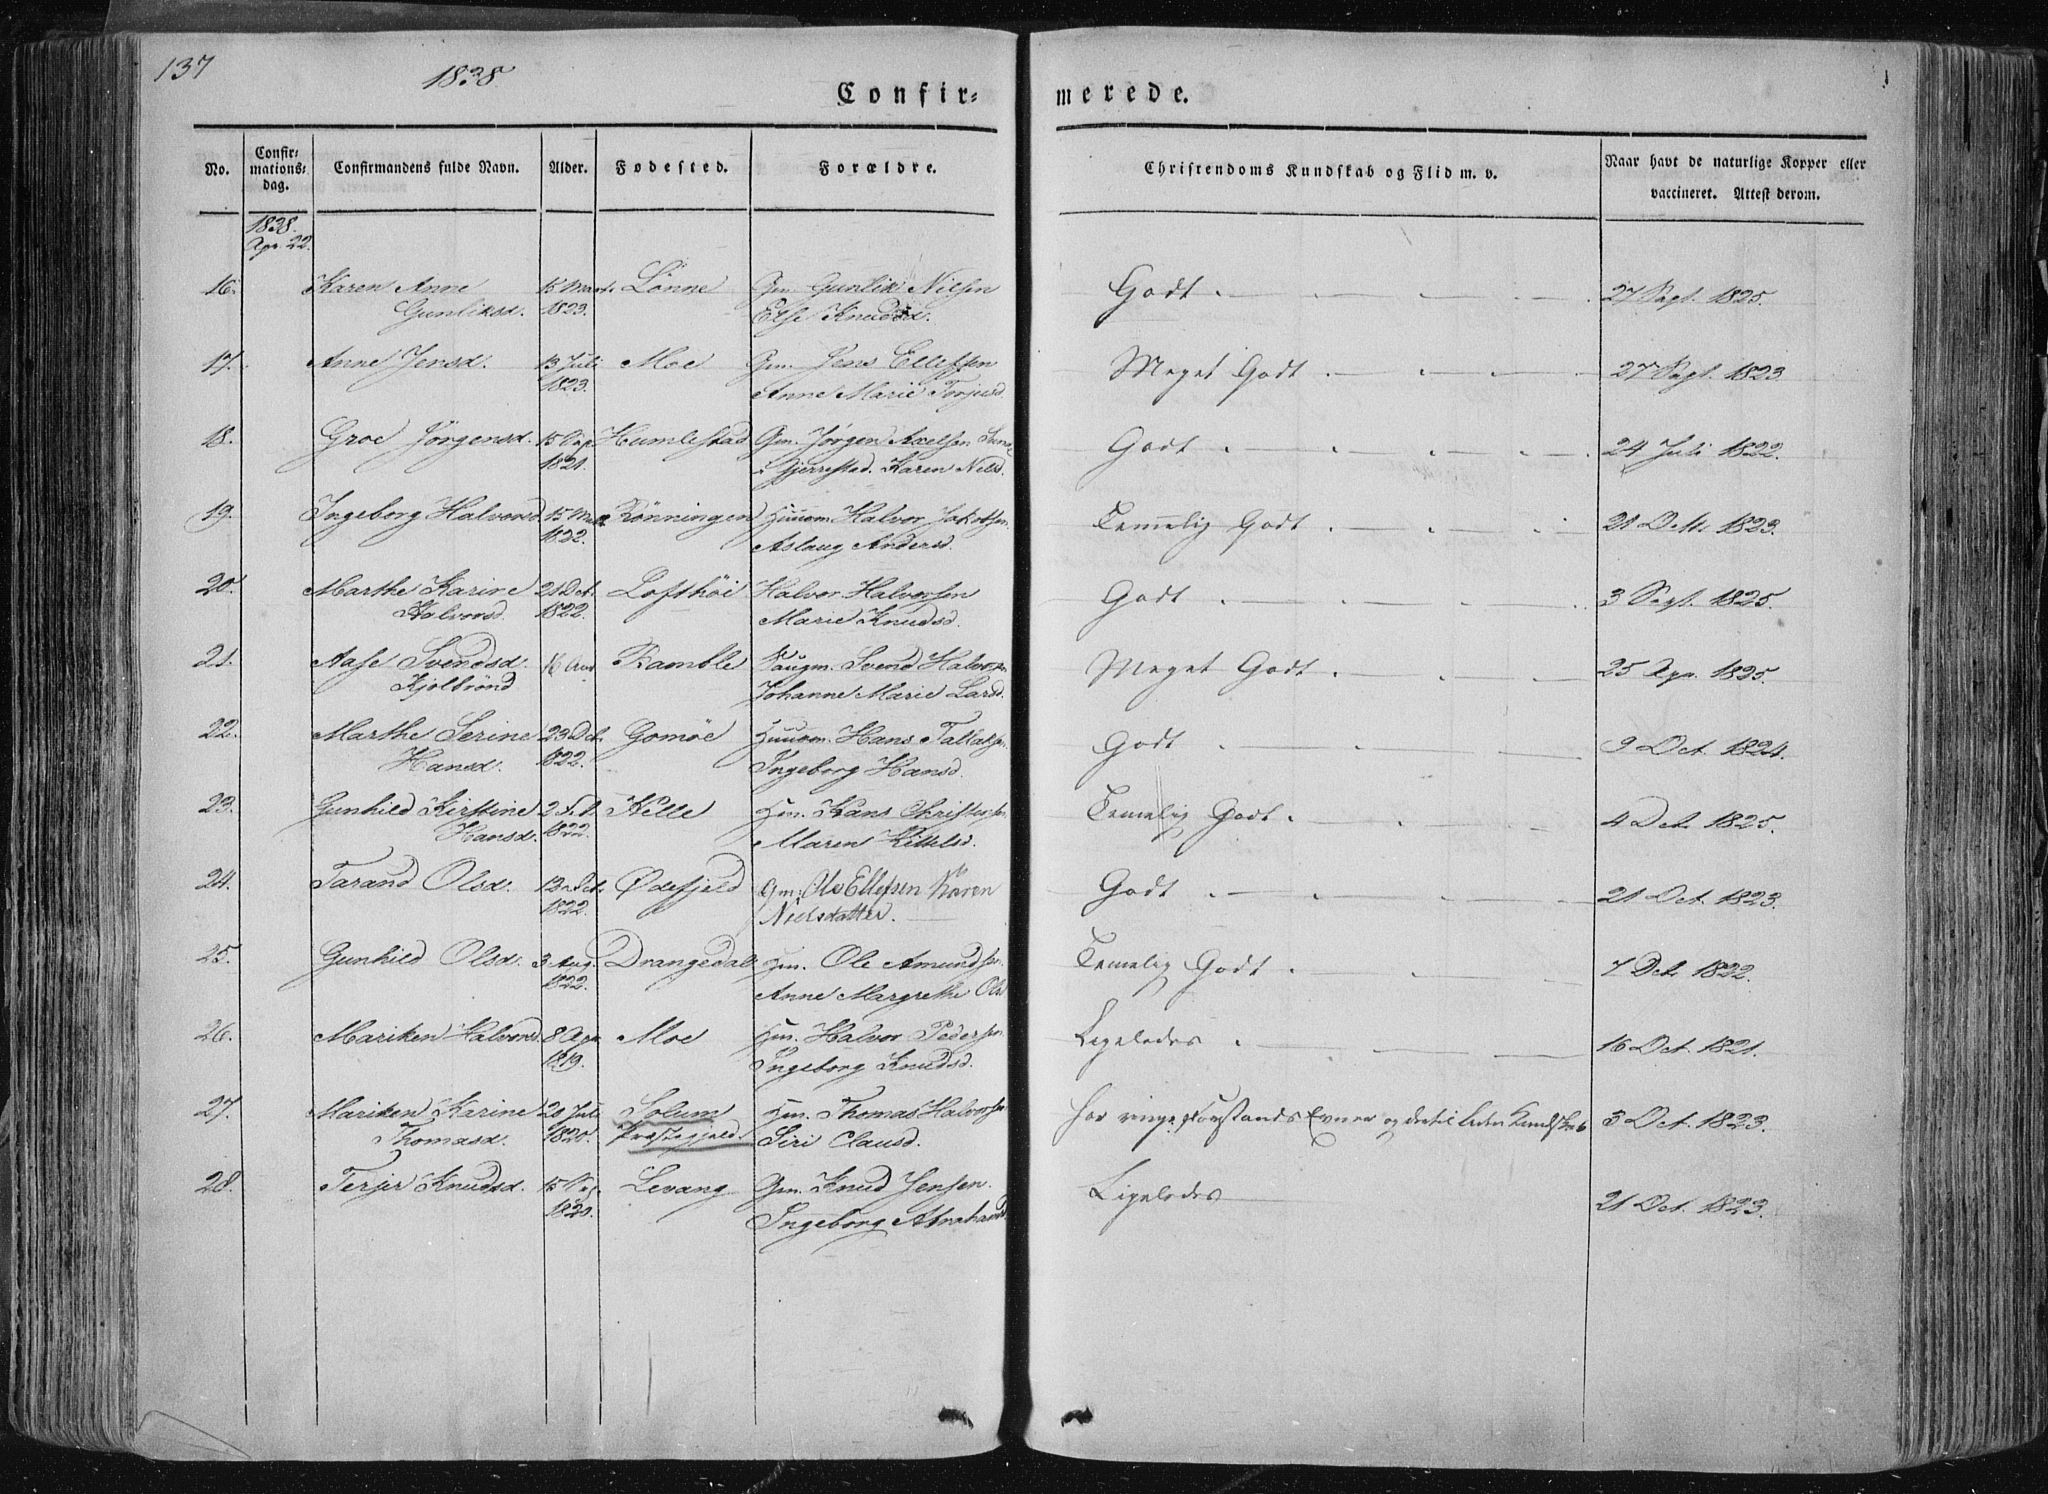 137
1838
Confir= merede.
No. Confir=mations=dag. Confirmandens fulde Navn. Alder. Fødested. Forældre. Christendoms Kundskab og Flid m. v. Naar havt de naturlige Kopper eller vaccineret. Attest derom.
1838.
Apr. 22.
16. Karen Anne 15 Lønne Gm Gunlik Nielsen Godt 27 Sept. 1825.
Gunliksd. 1823. Else Knudsd.
17. Anne Jensd. 13 Juli Moe Gm. Jens Ellefsen Meget Godt 27 Sept. 1823
1823. Anne Marie Torjusd.
18. Groe Jørgensd. 15 Humlestad Gm. Jørgen Axelsen Godt 24 Juli 1822.
1821. i Gjerrestad. Karen Nielsd.
19. Ingeborg Halvorsd. 15 Rönningen Huusm. Halvor Jakobsen Temelig Godt 21 Oct. 1823.
1822. Aslaug Andersd.
20. Marthe Karine 21 Oct. Lofthöi Halvor Halvorsen Godt 3 Sept. 1825.
Halvorsd. 1822. Marie Knudsd.
21. Aase Svendsd. 16 Bamble Svend Halvorsen Meget Godt 25 Apr. 1825.
Kjolbrönd Johanne Marie Larsd.
22. Marthe Serine 23 Oct. Gomöe Huusm. Hans Tallaksen Godt 9 Oct. 1824.
Hansd. 1822. Ingeborg Hansd.
23. Gunhild Kirstine 2 Helle Hm. Hans Christensen Temelig Godt 4 Oct. 1825.
Hansd. 1822. Maren Kittelsd.
24. Tarand Olsd. 12 Oct. Ødefjeld Gm. Ole Ellefsen Karen Godt 21 Oct. 1823.
1822. Nielsdatter.
25. Gunhild Olsd. 3 Aug. Drangedal Hm. Ole Amundsen Temelig Godt 7 Oct. 1822.
1822. Anne Margrethe Ols
26. Mariken Halvorsd. 8 Apr. Moe Hm. Halvor Pedersen Ligeledes 16 Oct. 1821.
1819. Ingeborg Knudsd.
27. Mariken Karine 20 Juli Solum Hm. Thomas Halvorsen har ringe Forstands Evner og dertil liden Kundskab 3 Oct. 1823.
Thomasd. 1820. Præstegjeld. Siri Clausd.
28. Terjer Knudsd. 15 Levang Gm. Knud Jensen. Ligeledes 21 Oct. 1823.
1820. Ingeborg Abrahamsd